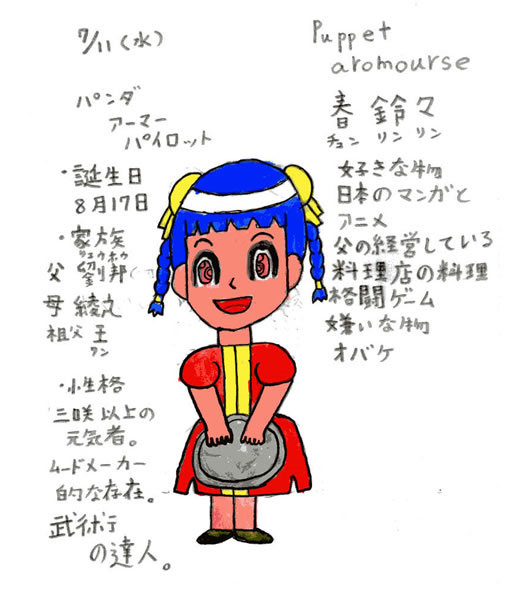 7/11(水)
パンダ
アーマー
パイロット
・誕生日
8月17日
・家族
リュウホウ
父 劉邦
母 綾之
祖父 王
ワン
・小性格
三咲以上の
元気者。
ムードメーカー
的な存在。
武術
の達人。
Puppet
aromourse
春鈴々
チュン リン リン
好きな物
日本のマンガと
アニメ
父の経営している
料理店の料理
格闘ゲーム
嫌いな物
オバケ